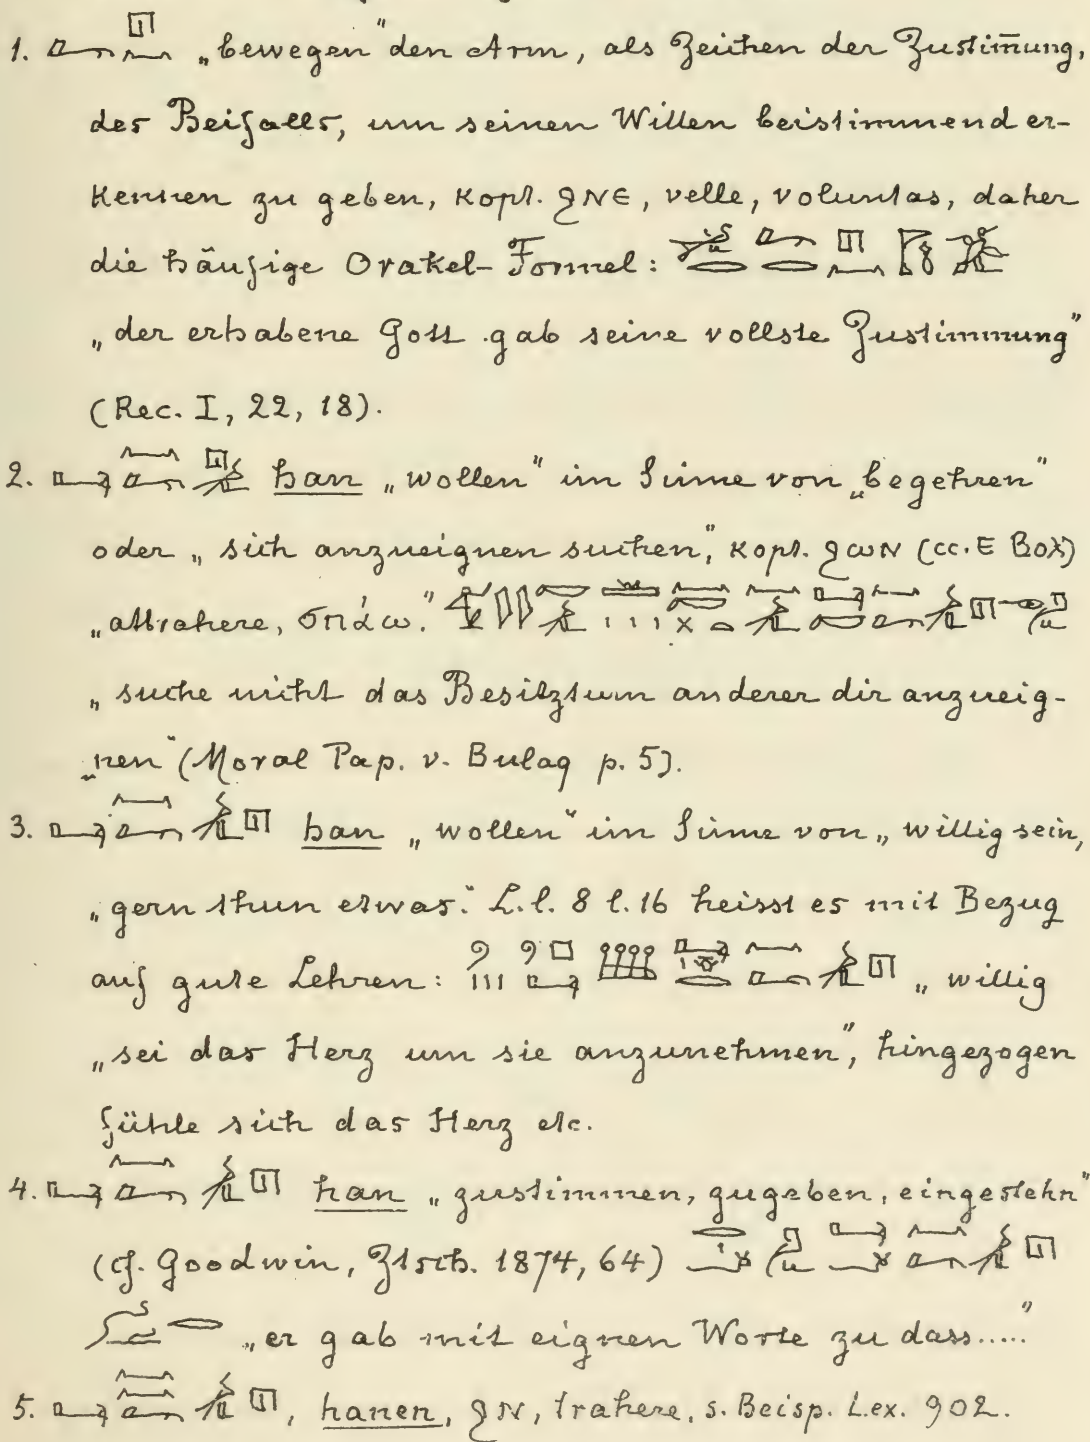 1. „bewegen“ den Arm, als Zeichen der Zustim̄ung,
des Beifalls, um seinen Willen beistimmend er-
kennen zu geben, kopt. ϩⲛⲉ, velle, voluntas, daher
die häufige Orakel-Formel:
„der erhabene Gott gab seine vollste Zustimmung“
(Rec. I, 22, 18).
2. han „wollen“ im Sinne von „begehren“
oder „sich anzueignen suchen,“ kopt. ϩⲱⲛ (cc. Ε ⲂⲞⲖ)
„attrahere, σπάω.“
„suche nicht das Besitztum anderer dir anzueig-
„nen“ (Moral Pap. v. Bulaq p. 5).
3. han „wollen“ im Sinne von „willig sein,
„gern thun etwas.“ L.l. 8 l. 16 heisst es mit Bezug
auf gute Lehren: „willig
„sei das Herz um sie anzunehmen“, hingezogen
fühle sich das Herz etc.
4. han „zustimmen, zugeben, eingestehn“
(cf. Goodwin, Ztsch. 1874, 64)
„er gab mit eignen Worte zu dass.....“
5. hanen, ϩⲛ, trahere, s. Beisp. Lex. 902.